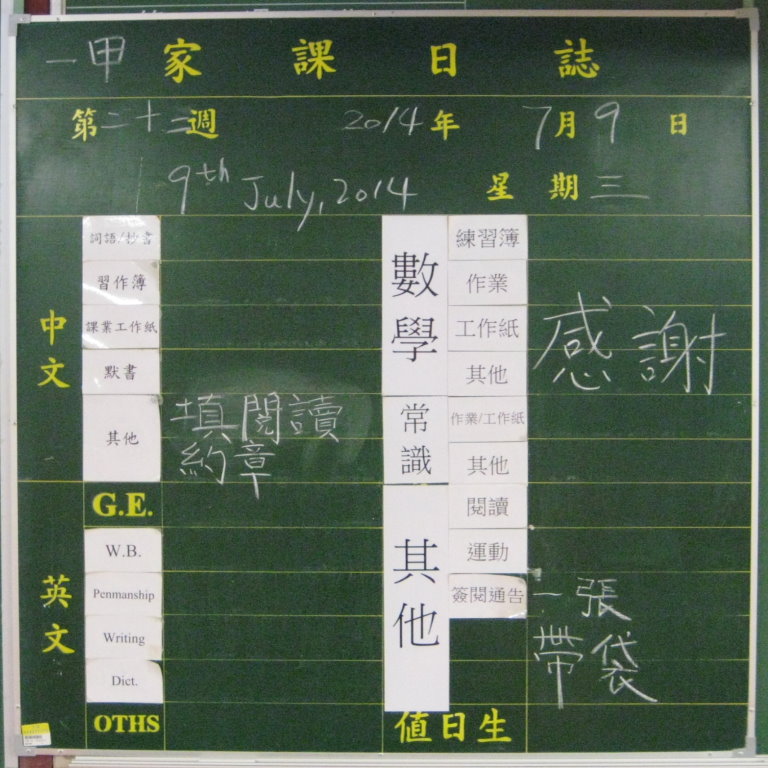 一甲 家課日誌
第二十三週 2014年 7月9日
9th July, 2014 星期三
中文
詞語/抄書
習作簿
課業工作紙
默書
其他
填閱讀
約章
英文
G.E.
W.B.
Penmanship
Writing
Dict.
OTHS
數學
練習簿
作業
工作紙
其他
感謝
常識
作業/工作紙
其他
其他
閱讀
運動
簽閱通告
一張
帶袋
值日生